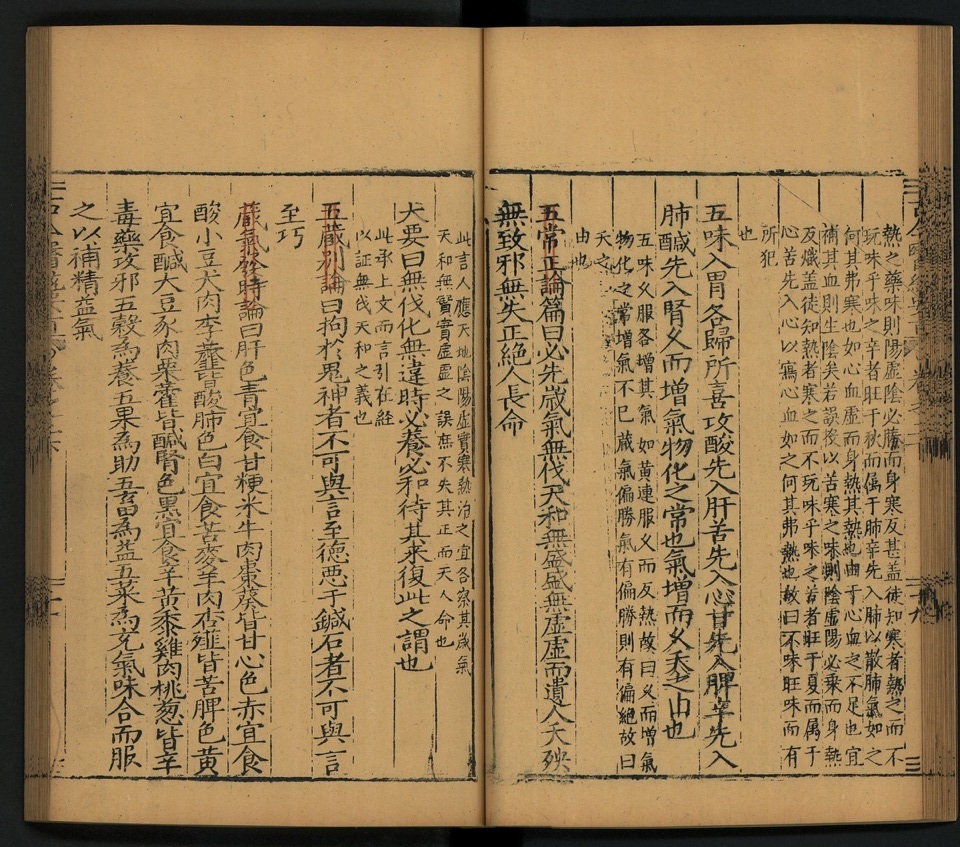 熱之藥味則陽虛陰必勝而身寒反甚盖徒知寒者熱之而不
玩味乎味之辛者旺于秋而属于肺辛先入肺以散肺氣如之
何其弗寒也如心血虛而身熱其熱也由于心血之不足也宜
補其血則生陰矣若誤後以苦寒之味則陰虛陽必乘而身熱
及熾盖徒知熱者寒之而不玩味乎味之苦者旺于夏而属于
心苦先入心以瀉心血如之何其弗熱也故曰不味旺味而有
所犯
也
五味入胃各歸所喜攻酸先入肝苦先入心甘先入脾辛先入
肺醎先入腎久而增氣物化之常也氣增而久夭之由也
五味久服各增其氣如黄連服久而反熱故曰久而增氣
物化之常增氣不已蔵氣偏勝氣有偏勝則有偏絶故曰
夭之
由也
五常正論篇曰必先歲氣無伐天和無盛盛無虛虛而遺人夭殃
無致邪無失正絶人長命
此言人應天地陰陽虛實寒熱治之宜各察其歲氣
天和無實實虛虛之誤庶不失其正而天人命也
大要曰無伐化無違時必養必和待其来復此之謂也
此承上文而言引在経
以証無伐天和之義也
五蔵别論曰拘於鬼神者不可與言至徳惡于鍼石者不可與言
至巧
蔵氣法時論曰肝色青宜食甘粳米牛肉棗葵皆甘心色赤宜食
酸小豆犬肉李韭皆酸肺色白宜食苦麥羊肉杏薤皆苦脾色黄
宜食醎大豆豕肉栗藿皆醎腎色黒宜食辛黄黍雞肉桃葱皆辛
毒藥攻邪五穀為養五果為助五畜為益五菜為充氣味合而服
之以補精益氣